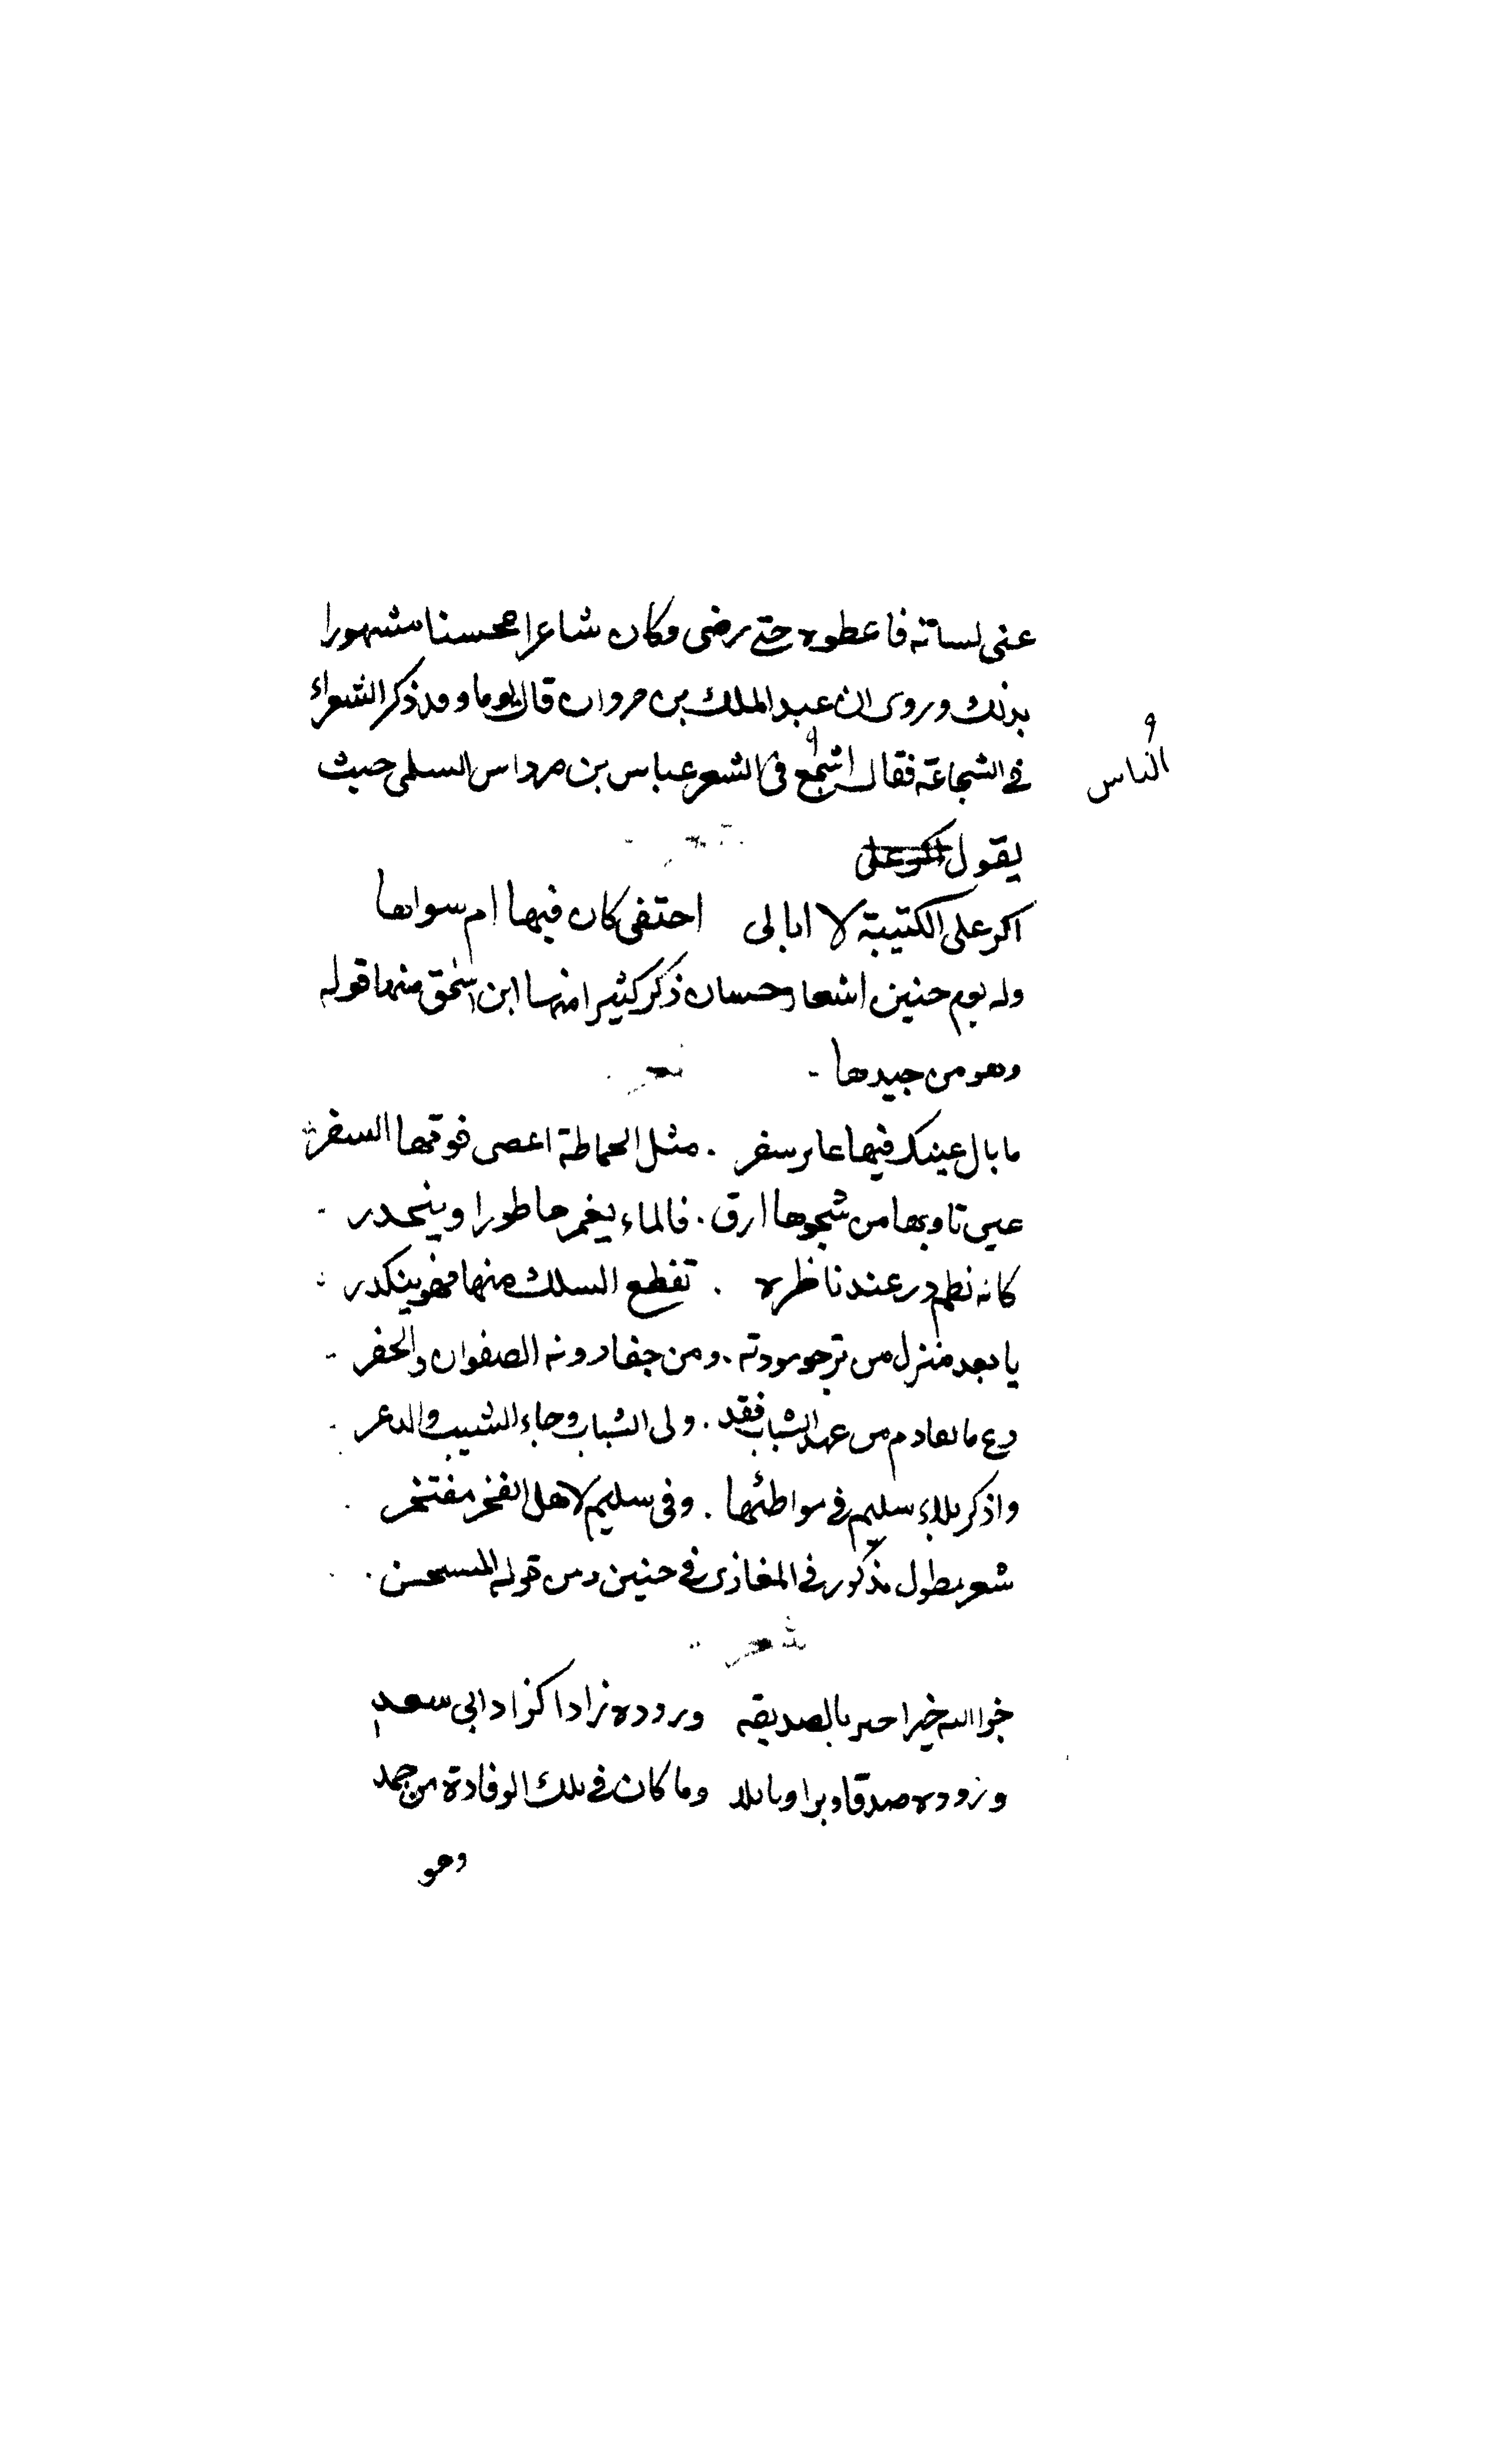 عنى لسانه فاعطوه حتى رضى وكان شاعرا محسنا مشهورا
بذلك وروى ان عبد الملك بن مروان قال يوما وقد ذكر الشعراء
في الشجاعة فقال اشجع في الشعر عباس بن مرداس السلمى حيث
الناس
يقول اكر على
اكر على الكتيبة لا ابالى احتفى كان فيها ام سواها
وله يوم حنين اشعار حسان ذكر كثيرا منها ابن اسحق منها قوله
وهو من جيدها
شعر
ما بال عينك فيها عاير سفر . مثل الحماطة اعصى فوقها السفر
عين تاوبها من شجوها ارق . فالماء يغمرها طورا وينحدر
كانه نظم در عند ناظره . تقطع السلك منها فهو ينكدر
يا بعد منزل من ترجو مودته . ومن جفا دونه الصفوان والحفر
دع ما تقادم من عهد الشباب فقد . ولى الشباب وجاء الشيب والدعر
واذكر بلاء سليم في مواطئها . وفى سليم لاهل الفخر مفتخر
شعر مطول مذكور في المغازى في حنين ومن قوله المستحسن .
شعر
جزا الله خيرا صديقه وزوده زادا كزاد ابى سعد
وزوده صدقا وبرا ونائلا وما كان في تلك الوفادة من حمد
وهو